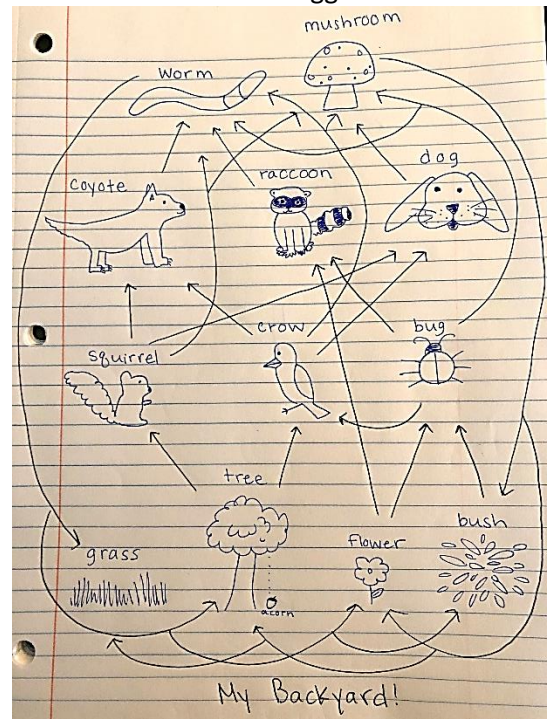 mushroom
worm
dog
coyote
raccoon
crow
bug
squirrel
tree
grass
flower
bush
acorn
My Backyard!